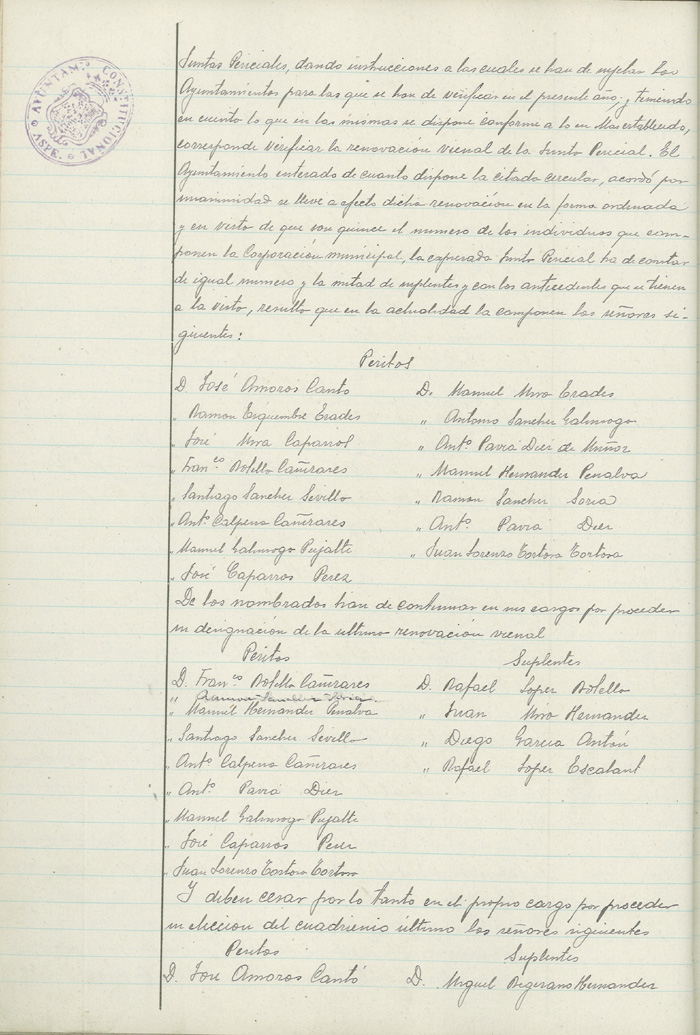 AYUNTAMTO CONSTITUCIONAL
ASPE.
Juntas Periciales, dando instrucciones a las cuales se han de sujetar los
Ayuntamientos para las que se han de verificar en el presente año; y teniendo
en cuenta lo que en las mismas se dispone conforme a lo en Mas establecido,
corresponde verificar la renovación vienal de la Junta Pericial. El
Ayuntamiento enterado de cuanto dispone la citada circular, acordó por
unanimidad se lleve a efecto dicha renovación en la forma ordenada
y en vista de que son quince el numero de los individuos que com-
ponen la Corporación municipal, la expresada Junta Pericial ha de constar
de igual numero y la mitad de suplentes y con los antecedentes que se tienen
a la vista, resulta que en la actualidad la componen los señores si-
guientes:
Peritos
D José Amoros Canto D. Manuel Miro Erades
" Ramon Esquembre Erades " Antonio Sancher Galinsogo
" José Mira Caparrós " Antº. Pavia Dier de Muñoz
" Franco. Botella Cañizares " Manuel Hernander Penalva
" Santiago Sancher Sevilla " Ramon Sancher Soria
" Antº. Calpena Cañizares " Antº. Pavia Dier
" Manuel Galinsogo Pujalte " Juan Lorenzo Cortova Cortova
" José Caparros Perez
De los nombrados han de continuar en sus cargos por proceder
su designación de la ultima renovación vienal
Peritos Suplentes
D. Franco. Botella Cañizares D. Rafael Soper Botella
" Ramon Sancher Soria
" Manuel Hernander Penalva " Juan Miro Hernander
" Santiago Sancher Sevilla " Diego Garcia Antón
" Antº Calpena Cañizares " Rafael Soper Escolant
" Antº. Pavia Dier
" Manuel Galinsogo Pujalte
" José Caparros Perer
" Juan Lorenzo Cortova Cortova
Y deben cesar por lo tanto en el propio cargo por proceder
su eleccion del cuadrienio último los señores siguientes
Peritos Suplentes
D. José Amoros Cantó D. Miguel Hernander